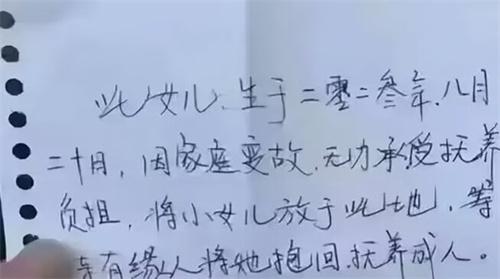 此女儿、生于二零二叁年、八月
二十日，因家庭变故、无力承受抚养
负担，将小女儿放于此地，等
待有缘人将她抱回抚养成人。